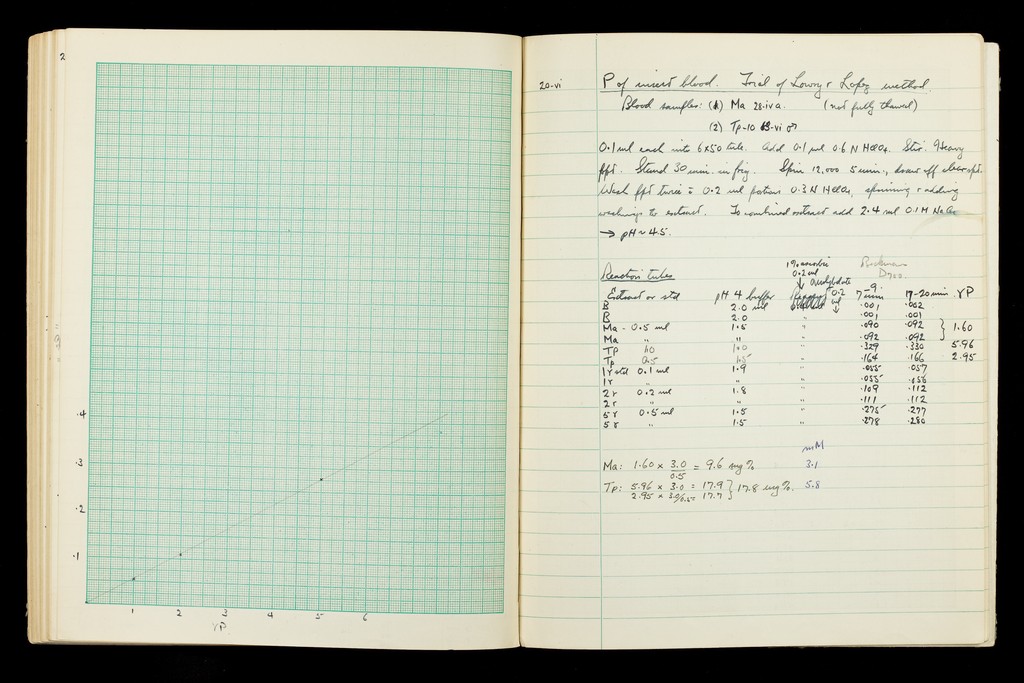 2
.4
.3
.2
.1
1 2 3 4 5 6
γP
20-vi
P of insect blood. Trial of Lowry & Lopez method.
Blood samples: (1) Ma 28.iv a. (not fully thawed)
(2) Tp-10 -vi ♂
0.1 ml each into 6x50 tube. Add 0.1 ml 0.6 N HClO4. Stir. Heavy
ppt. Stand 30 min. in frig. Spin 12,000 5 min., draw off clear spt.
Wash ppt twice c̄ 0.2 ml portions 0.3 N HClO4, spinning & adding
washings to extract. To combined extract add 2.4 ml 0.1 M NaAc
→ pH ~ 4.5.
Reaction tubes
1% ascorbic
0.2 ml
↓
molybdate
0.2 ml
↓
Beckman
D700
Extract or std pH 4 buffer 7-9 min 17-20 min γP
B 2.0 ml .001 .002
B 2.0 " .001 .001
Ma - 0.5 ml 1.5 " .090 .092
Ma " " " .092 .092 } 1.60
Tp 1.0 1.0 " .329 .330 5.96
Tp 0.5 1.5 " .164 .166 2.95
1γ std 0.1 ml 1.9 " .055 .057
1γ " " " .055 .058
2γ 0.2 ml 1.8 " .109 .112
2γ " " " .111 .112
5γ 0.5 ml 1.5 " .275 .277
5γ " 1.5 " .278 .280
mM
Ma: 1.60 x 3.0/0.5 = 9.6 mg % 3.1
Tp: 5.96 x 3.0 = 17.9 } 17.8 mg %. 5.8
2.95 x 3.0/0.5 = 17.7